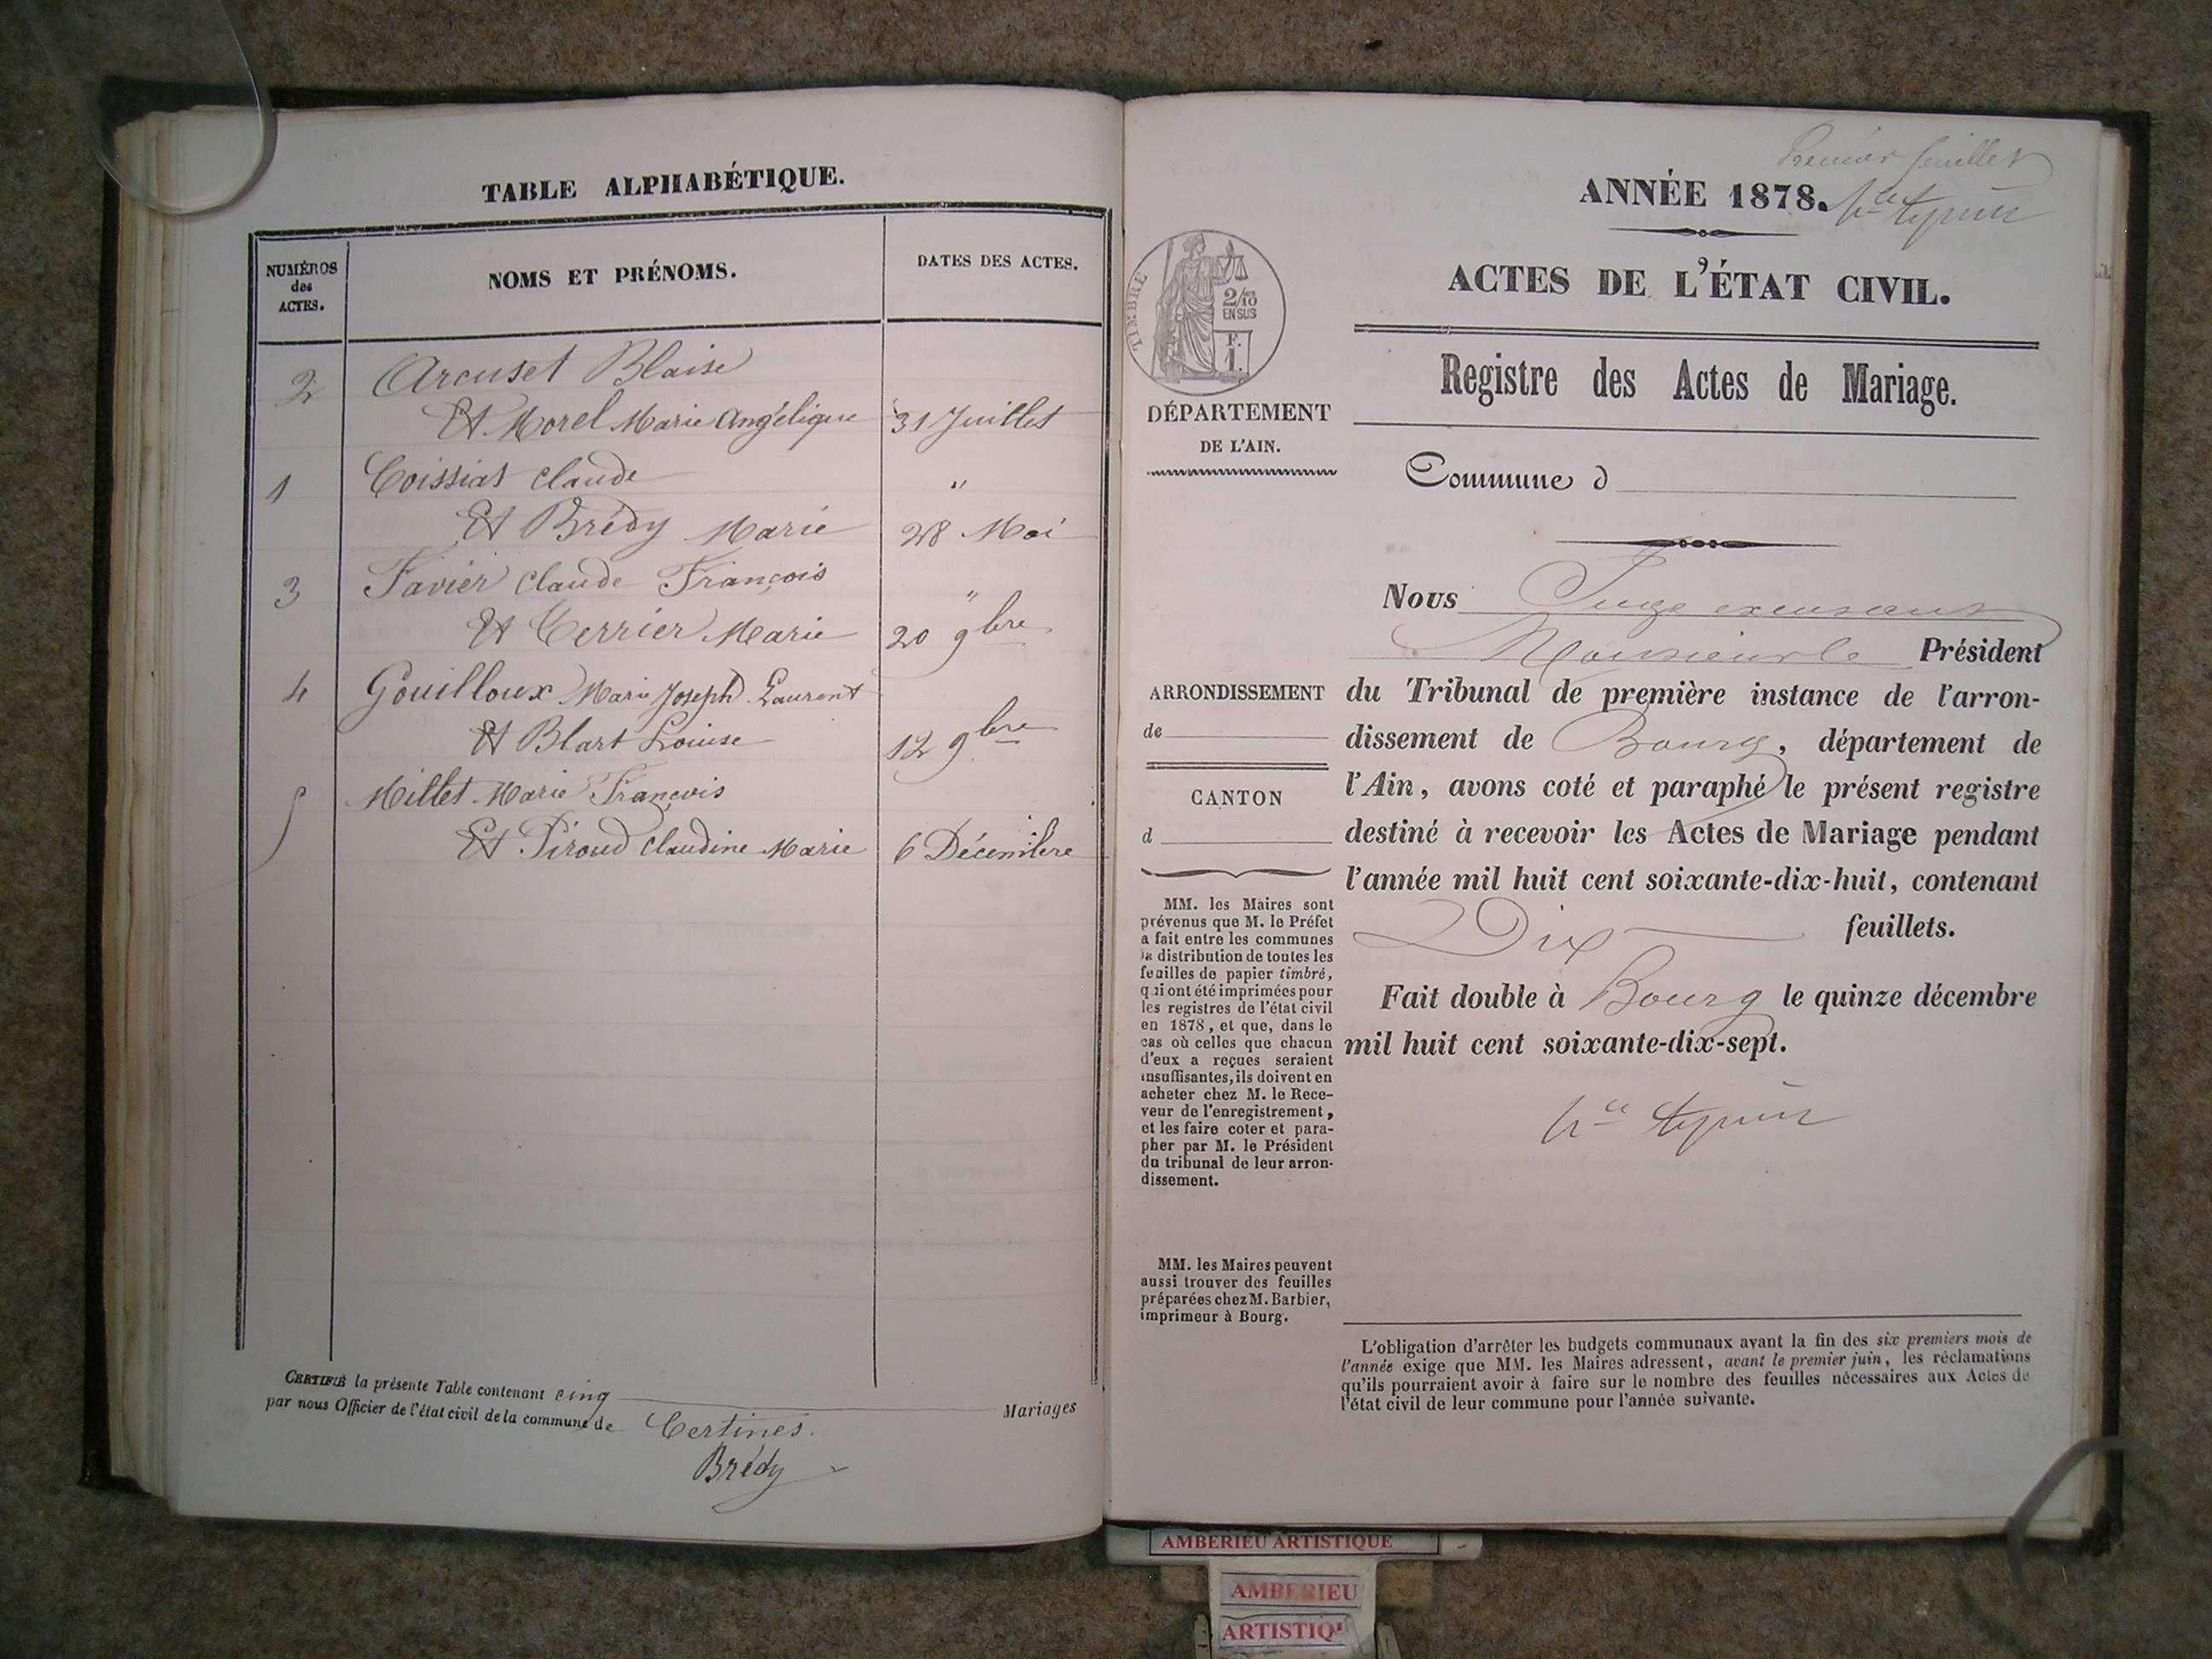 TABLE ALPHABÉTIQUE.
NUMÉROS
des
ACTES.
NOMS ET PRÉNOMS.
DATES DES ACTES.
2 Arcuset Blaise
Et Morel Marie Angélique 31 Juillet
1 Coissiat Claude "
Et Brédy Marie 28 Mai
3 Favier Claude François "
Et Terrier Marie 20 9bre
4 Gouilloux Marie Joseph Laurent
Et Blart Louise 12 9bre
5 Millet Marie François
Et Piroud Claudine Marie 6 Décembre
CERTIFIÉ la présente Table contenant cinq Mariages
par nous Officier de l'état civil de la commune de Certines.
Brédy
Premier feuillet
ANNÉE 1878.
ACTES DE L'ÉTAT CIVIL.
TIMBRE
2/10
EN SUS
F.
1.
Registre des Actes de Mariage.
DÉPARTEMENT
DE L'AIN.
Commune d
Nous Juge excusant
Monsieur le Président
ARRONDISSEMENT
de
CANTON
d
du Tribunal de première instance de l'arron-
dissement de Bourg, département de
l'Ain, avons coté et paraphé le présent registre
destiné à recevoir les Actes de Mariage pendant
l'année mil huit cent soixante-dix-huit, contenant
Dix feuillets.
Fait double à Bourg le quinze décembre
mil huit cent soixante-dix-sept.
MM. les Maires sont
prévenus que M. le Préfet
a fait entre les communes
la distribution de toutes les
feuilles de papier timbré,
qui ont été imprimées pour
les registres de l'état civil
en 1878, et que, dans le
cas où celles que chacun
d'eux a reçues seraient
insuffisantes, ils doivent en
acheter chez M. le Rece-
veur de l'enregistrement,
et les faire coter et para-
pher par M. le Président
du tribunal de leur arron-
dissement.
MM. les Maires peuvent
aussi trouver des feuilles
préparées chez M. Barbier,
imprimeur à Bourg.
L'obligation d'arrêter les budgets communaux avant la fin des six premiers mois de
l'année exige que MM. les Maires adressent, avant le premier juin, les réclamations
qu'ils pourraient avoir à faire sur le nombre des feuilles nécessaires aux Actes de
l'état civil de leur commune pour l'année suivante.
AMBERIEU ARTISTIQUE
AMBERIEU
ARTISTIQ